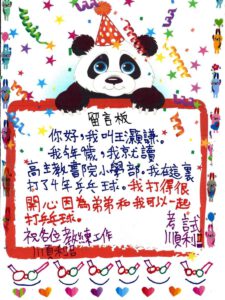 留言板
你好，我叫王灝謙。
我年歲，我就讀
高主教書院小學部。我在這裏
打了七年乒乓球。我打得很
開心因為弟弟和我可以一起
打乒乓球。
考試
順利
祝各位教練工作
順利